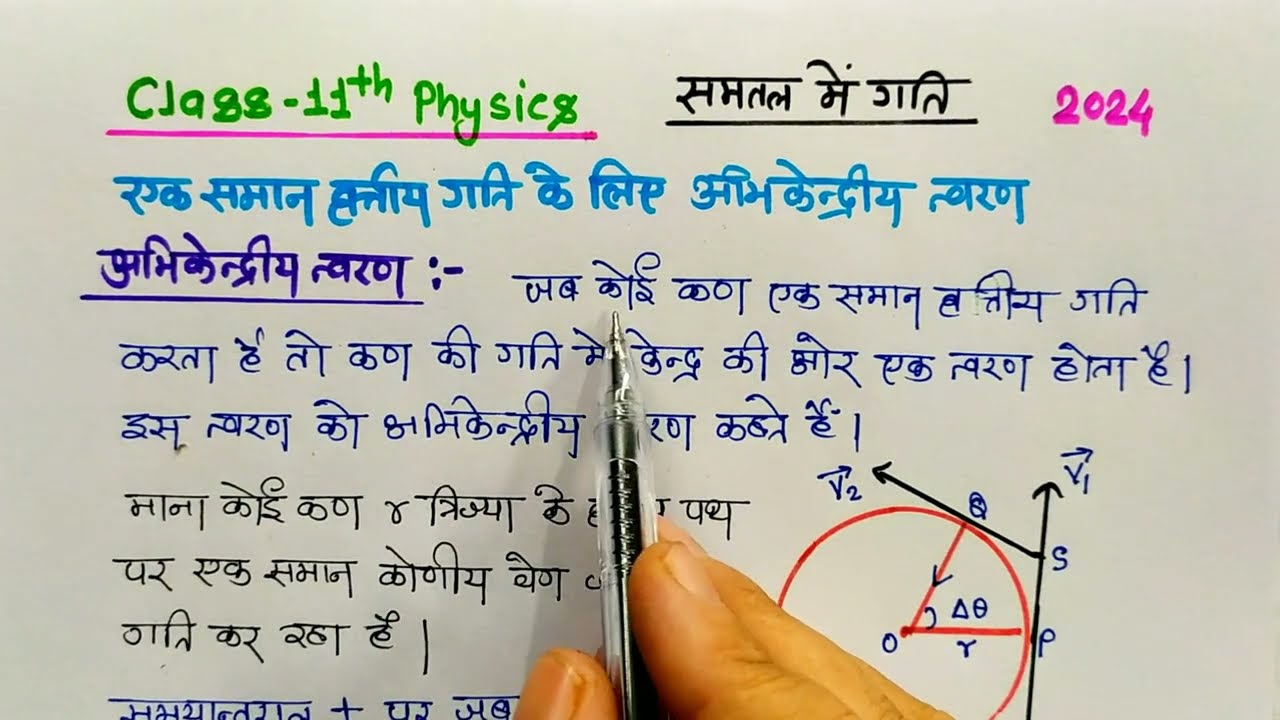 Class-11th Physics समतल में गति 2024
एक समान वृत्तीय गति के लिए अभिकेन्द्रीय त्वरण
अभिकेन्द्रीय त्वरण :- जब कोई कण एक समान वृत्तीय गति
करता है तो कण की गति मे केन्द्र की ओर एक त्वरण होता है।
इस त्वरण को अभिकेन्द्रीय रण कहते हैं।
माना कोई कण r त्रिज्या के पथ
पर एक समान कोणीय वेग
गति कर रहा है |
समयान्तराल t पर जब
V⃗2 V⃗1
Q
S
Δθ
O r P